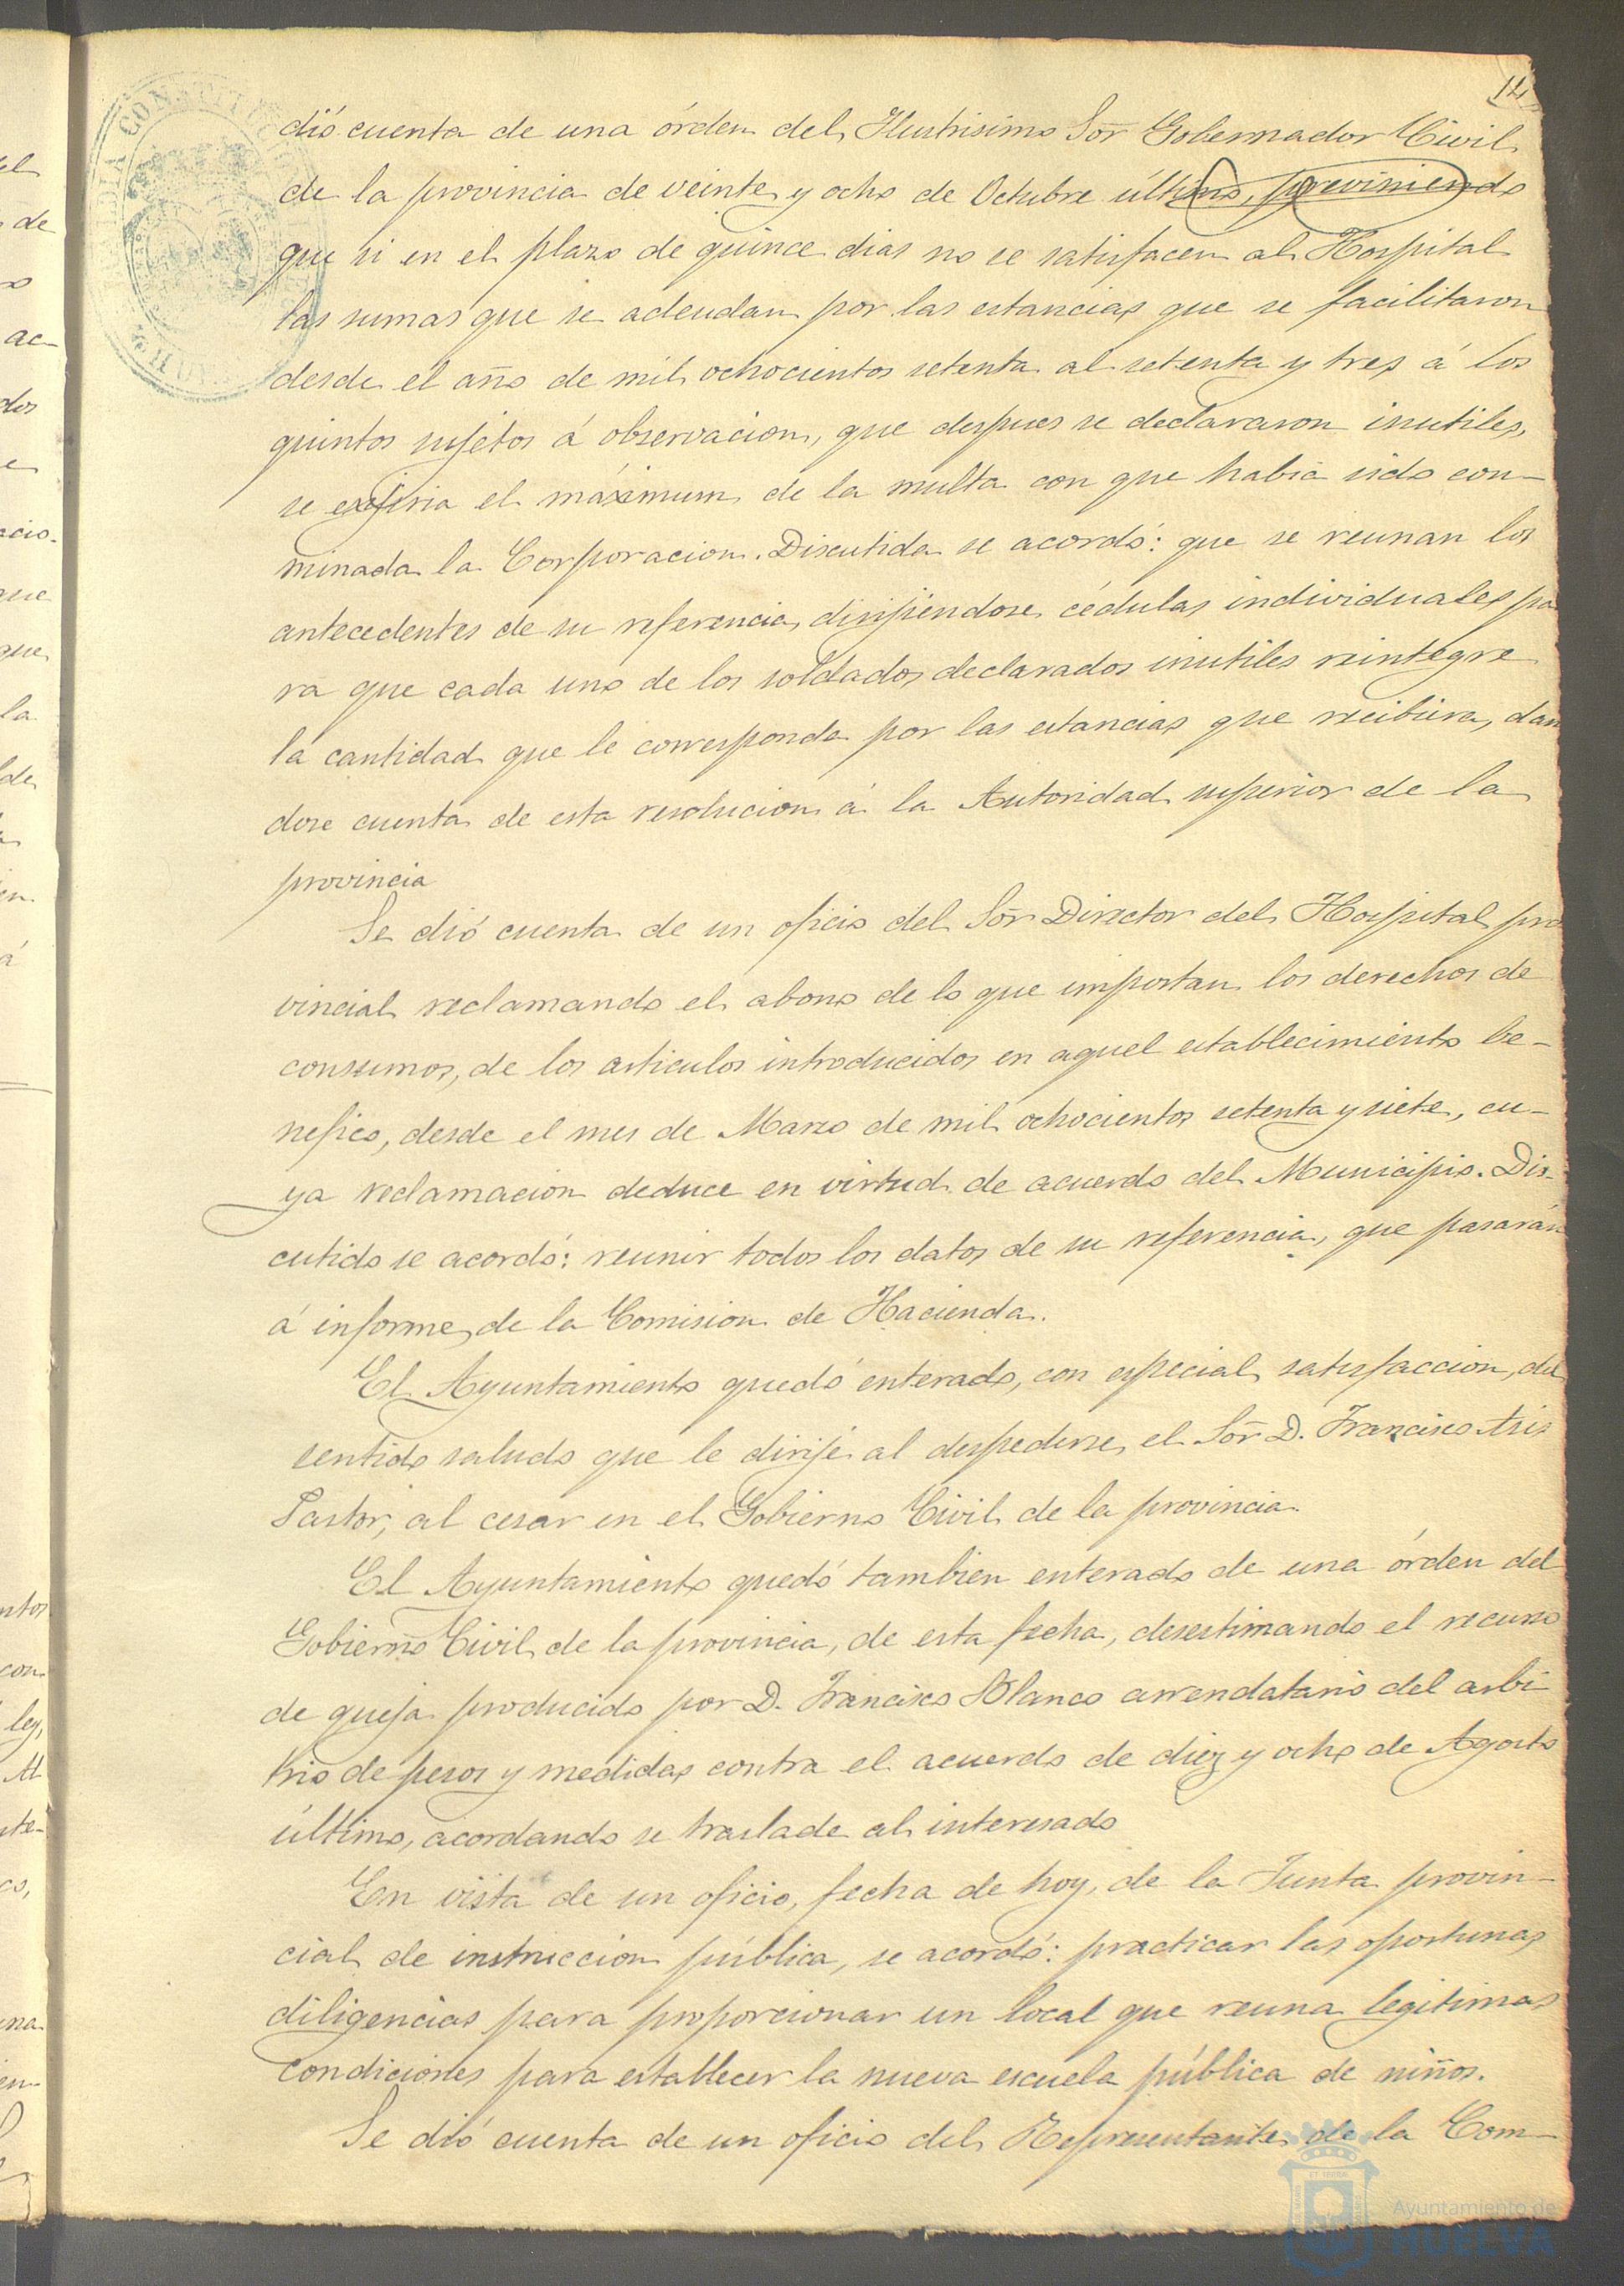 14
dió cuenta de una órden del Ilustrisimo Sor Gobernador Civil
de la provincia de veinte y ocho de Octubre último, previniendo
que si en el plazo de quince dias no se satisfacen al Hospital
las sumas que se adeudan por las estancias que se facilitaron
desde el año de mil ochocientos setenta al setenta y tres á los
quintos sujetos á observacion, que despues se declararon inutiles,
se exijiria el máximum de la multa con que habia sido con-
minada la Corporacion. Discutida se acordó: que se reunan los
antecedentes de su referencia, dirijiendose cédulas individuales pa
ra que cada uno de los soldados declarados inutiles reintegre
la cantidad que le corresponda por las estancias que recibiera, dan
dose cuenta de esta resolucion á la Autoridad superior de la
provincia
Se dió cuenta de un oficio del Sor Director del Hospital pro
vincial reclamando el abono de lo que importan los derechos de
consumos, de los articulos introducidos en aquel establecimiento be-
nefico, desde el mes de Marzo de mil ochocientos setenta y siete, cu-
ya reclamacion deduce en virtud de acuerdo del Municipio. Dis-
cutido se acordó: reunir todos los datos de su referencia, que pasarán
á informe de la Comision de Hacienda.
El Ayuntamiento quedó enterado, con especial satisfaccion, del
sentido saludo que le dirije al despedirse, el Sor D. Francisco Asis
Pastor, al cesar en el Gobierno Civil de la provincia.
El Ayuntamiento quedó tambien enterado de una órden del
Gobierno Civil de la provincia, de esta fecha, desestimando el recurso
de queja producido por D. Francisco Blanco arrendatario del arbi
trio de pesos y medidas contra el acuerdo de diez y ocho de Agosto
último, acordando se traslade al interesado
En vista de un oficio, fecha de hoy, de la Junta provin-
cial de instruccion pública, se acordó: practicar las oportunas
diligencias para proporcionar un local que reuna legitimas
condiciones para establecer la nueva escuela pública de niños.
Se dió cuenta de un oficio del Representante de la Com-
Ayuntamiento de
HUELVA